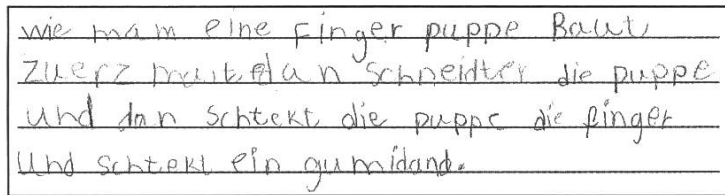 wie mam eine Finger puppe Baut,
zuerz malt dan schneidter die puppe
und dan schtekt die puppe die finger
und schtekt ein gumidand.